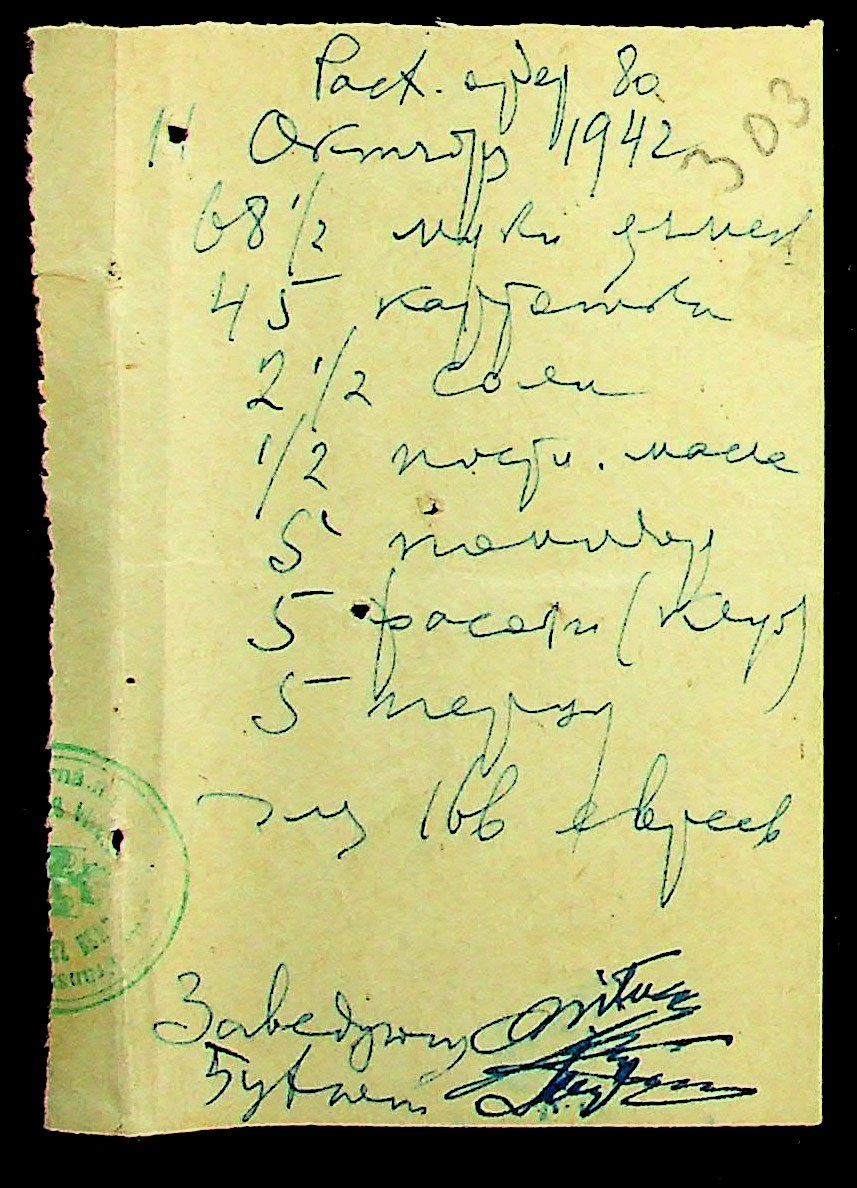 Расх. ордер 80
303
11 Октября 1942
68 1/2 муки ячмен
45 картошки
2 1/2 соли
1/2 постн. масла
5 помидор
5 фасоли (
5 перцу
для 166 евреев
Заведующ